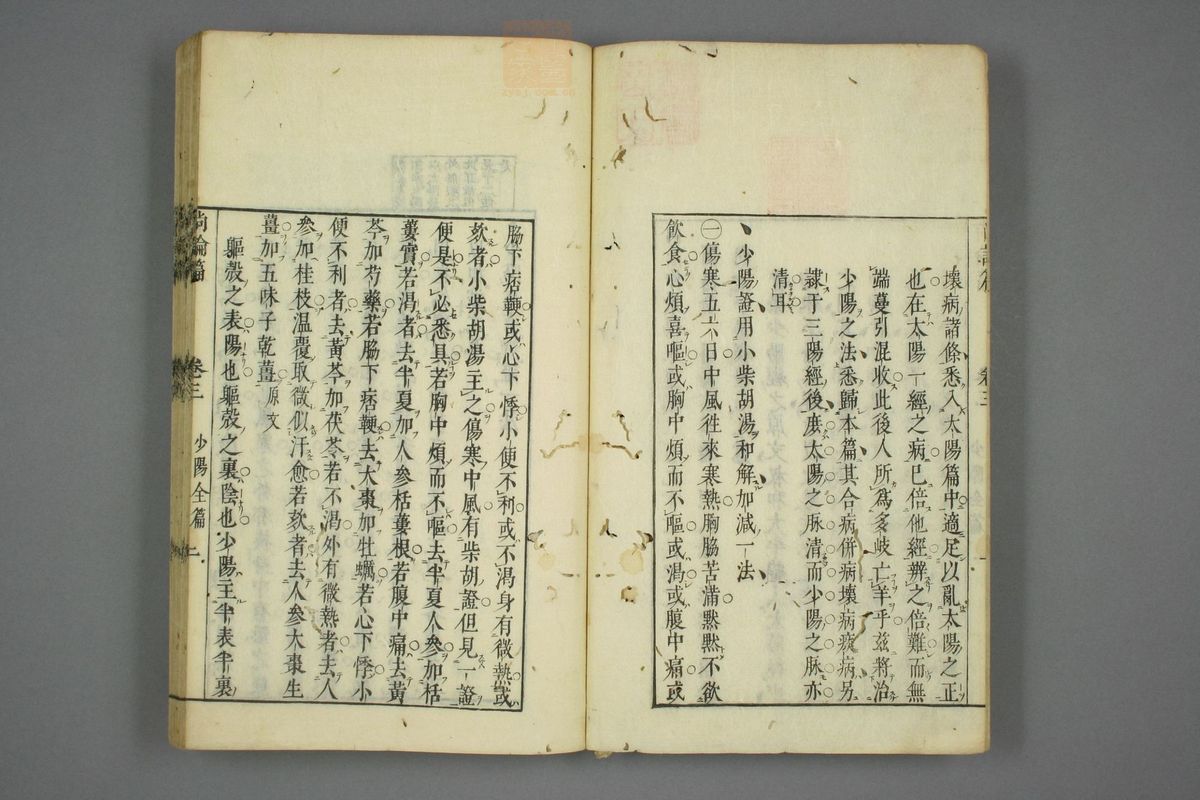 壞病諸條悉入太陽篇中適足以亂太陽之正
也在太陽一經之病已倍他經辨之倍難而無
端蔓引混收此後人所爲多岐亡羊乎兹將治
少陽之法悉歸本篇其合病併病壞病痰病另
隷于三陽經後庶太陽之脉清而少陽之脉亦
清耳
少陽證用小柴胡湯和解加減一法
㊀傷寒五六日中風徃來寒熱胸脇苦滿黙黙不欲
飲食心煩喜嘔或胸中煩而不嘔或渴或腹中痛或
脇下痞鞕或心下悸小便不利或不渴身有微熱或
欬者小柴胡湯主之傷寒中風有柴胡證但見一證
便是不必悉具若胸中煩而不嘔去半夏人參加栝
蔞實若渴者去半夏加人參栝蔞根若腹中痛去黃
芩加芍藥若脇下痞鞕去大棗加牡蠣若心下悸小
便不利者去黃芩加茯苓若不渴外有微熱者去人
參加桂枝温覆取微似汗愈若欬者去人參大棗生
薑加五味子乾薑原文
軀殻之表陽也軀殻之裏陰也少陽主半表半裏
尚論篇 卷三 少陽全篇 二